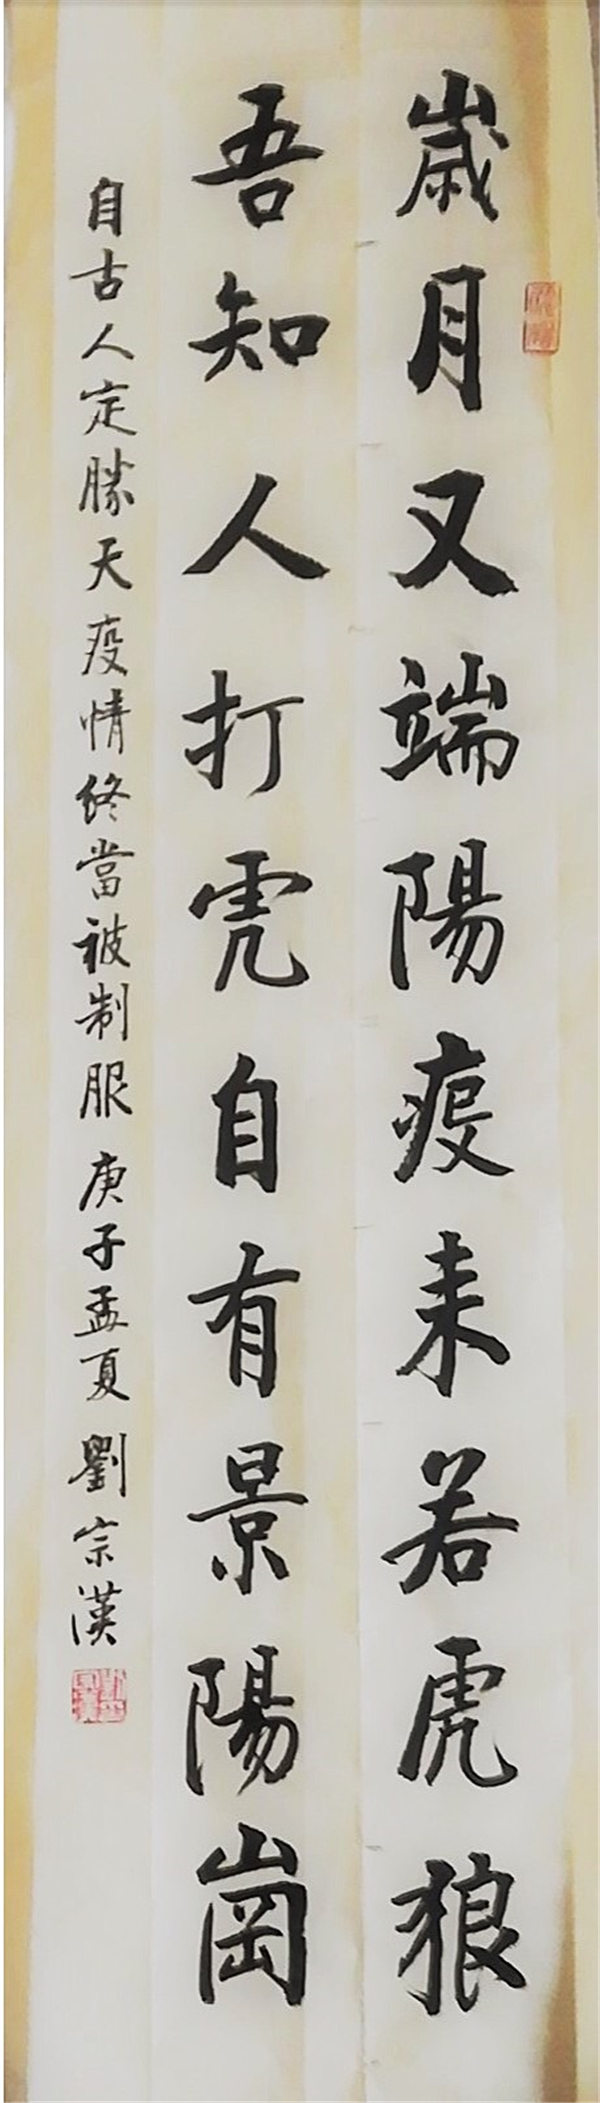 歲月又端陽疫来若虎狼
吾知人打虎自有景陽崗
自古人定勝天疫情终當被制服庚子孟夏劉宗漢